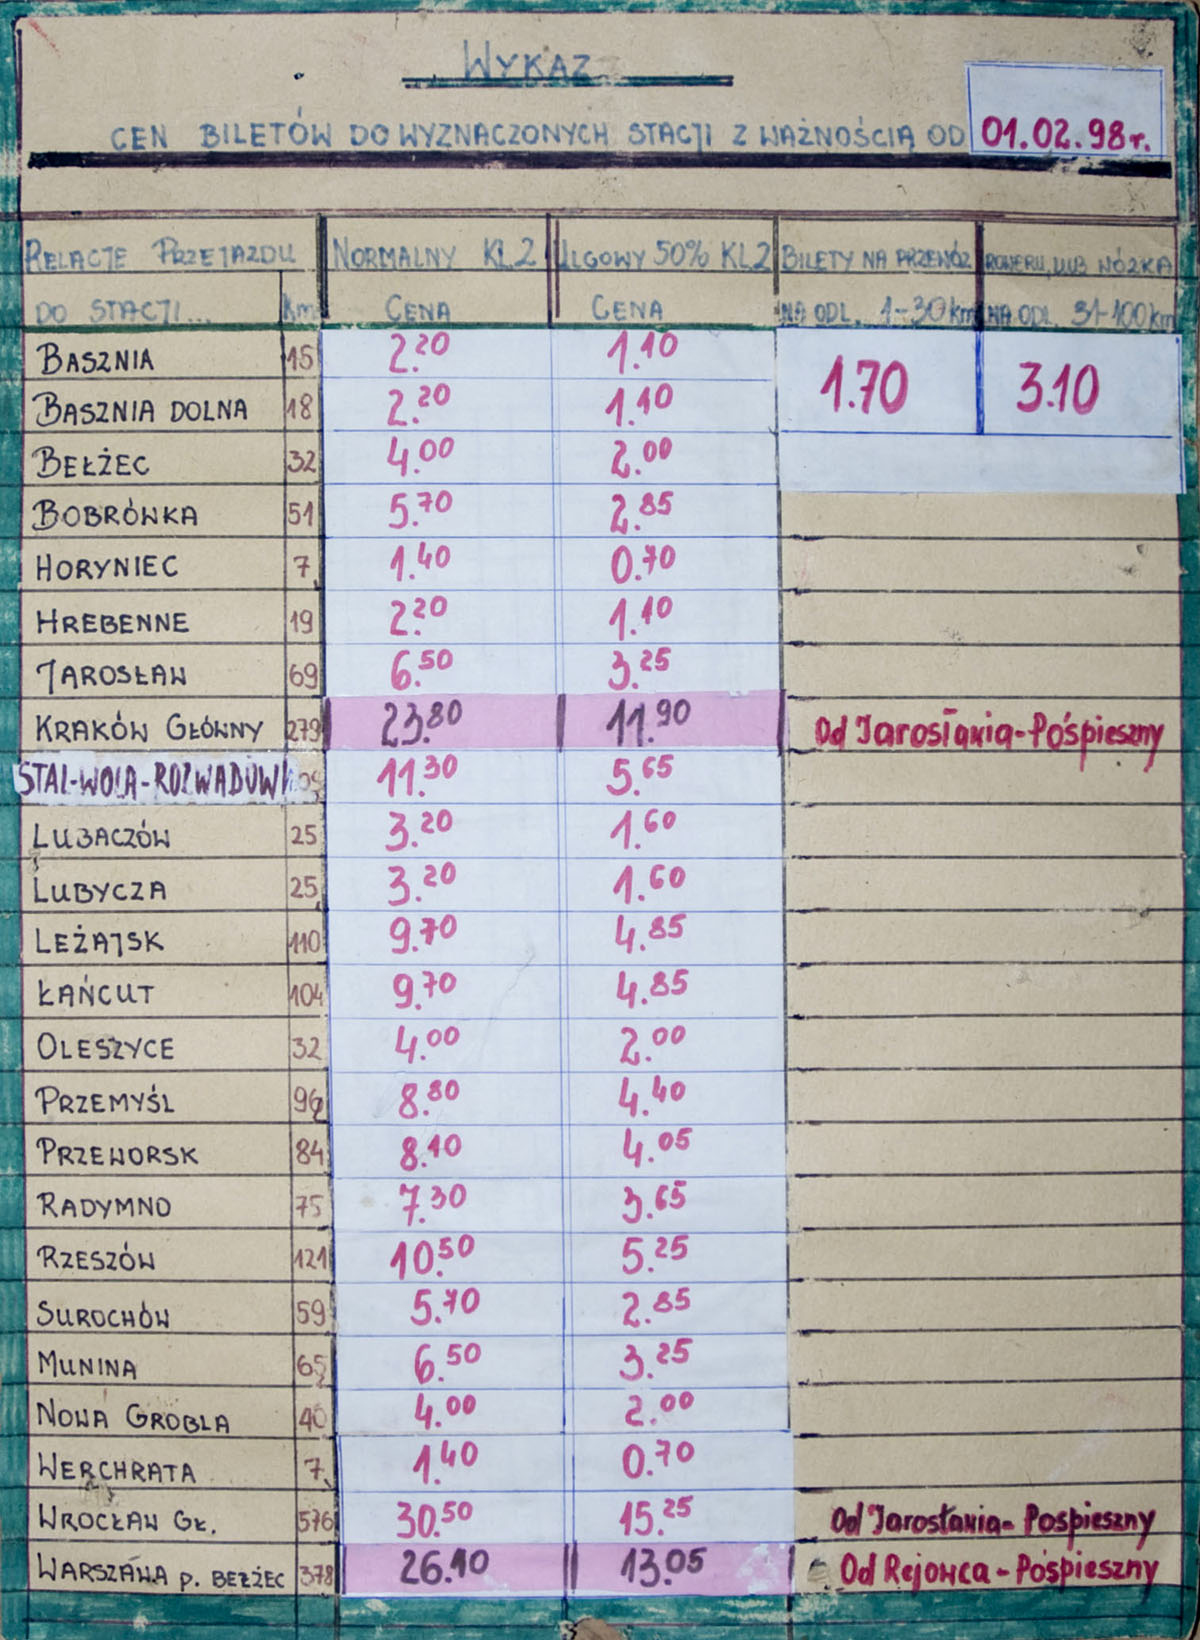 WYKAZ
CEN BILETÓW DO WYZNACZONYCH STACJI Z WAŻNOŚCIĄ OD 01.02.98r.
RELACJE PRZEJAZDU NORMALNY KL.2 ULGOWY 50% KL.2 BILETY NA PRZEWÓZ ROWERU, LUB WÓZKA
DO STACJI... Km CENA CENA NA ODL. 1-30 km NA ODL. 31-100 km
BASZNIA 15 2.20 1.10 1.70 3.10
BASZNIA DOLNA 18 2.20 1.10
BEŁŻEC 32 4.00 2.00
BOBRÓWKA 51 5.70 2.85
HORYNIEC 7 1.40 0.70
HREBENNE 19 2.20 1.10
JAROSŁAW 69 6.50 3.25
KRAKÓW GŁÓWNY 279 23.80 11.90 Od Jarosławia-Pośpieszny
STAL-WOLA-ROZWADÓW 11.30 5.65
LUBACZÓW 25 3.20 1.60
LUBYCZA 25 3.20 1.60
LEŻAJSK 110 9.70 4.85
ŁAŃCUT 104 9.70 4.85
OLESZYCE 32 4.00 2.00
PRZEMYŚL 8.80 4.40
PRZEWORSK 84 8.10 4.05
RADYMNO 75 7.30 3.65
RZESZÓW 121 10.50 5.25
SUROCHÓW 59 5.70 2.85
MUNINA 65 6.50 3.25
NOWA GROBLA 40 4.00 2.00
WERCHRATA 7 1.40 0.70
WROCŁAW GŁ. 576 30.50 15.25 Od Jarosławia-Pospieszny
WARSZAWA p. BEŁŻEC 378 26.10 13.05 Od Rejowca-Pośpieszny